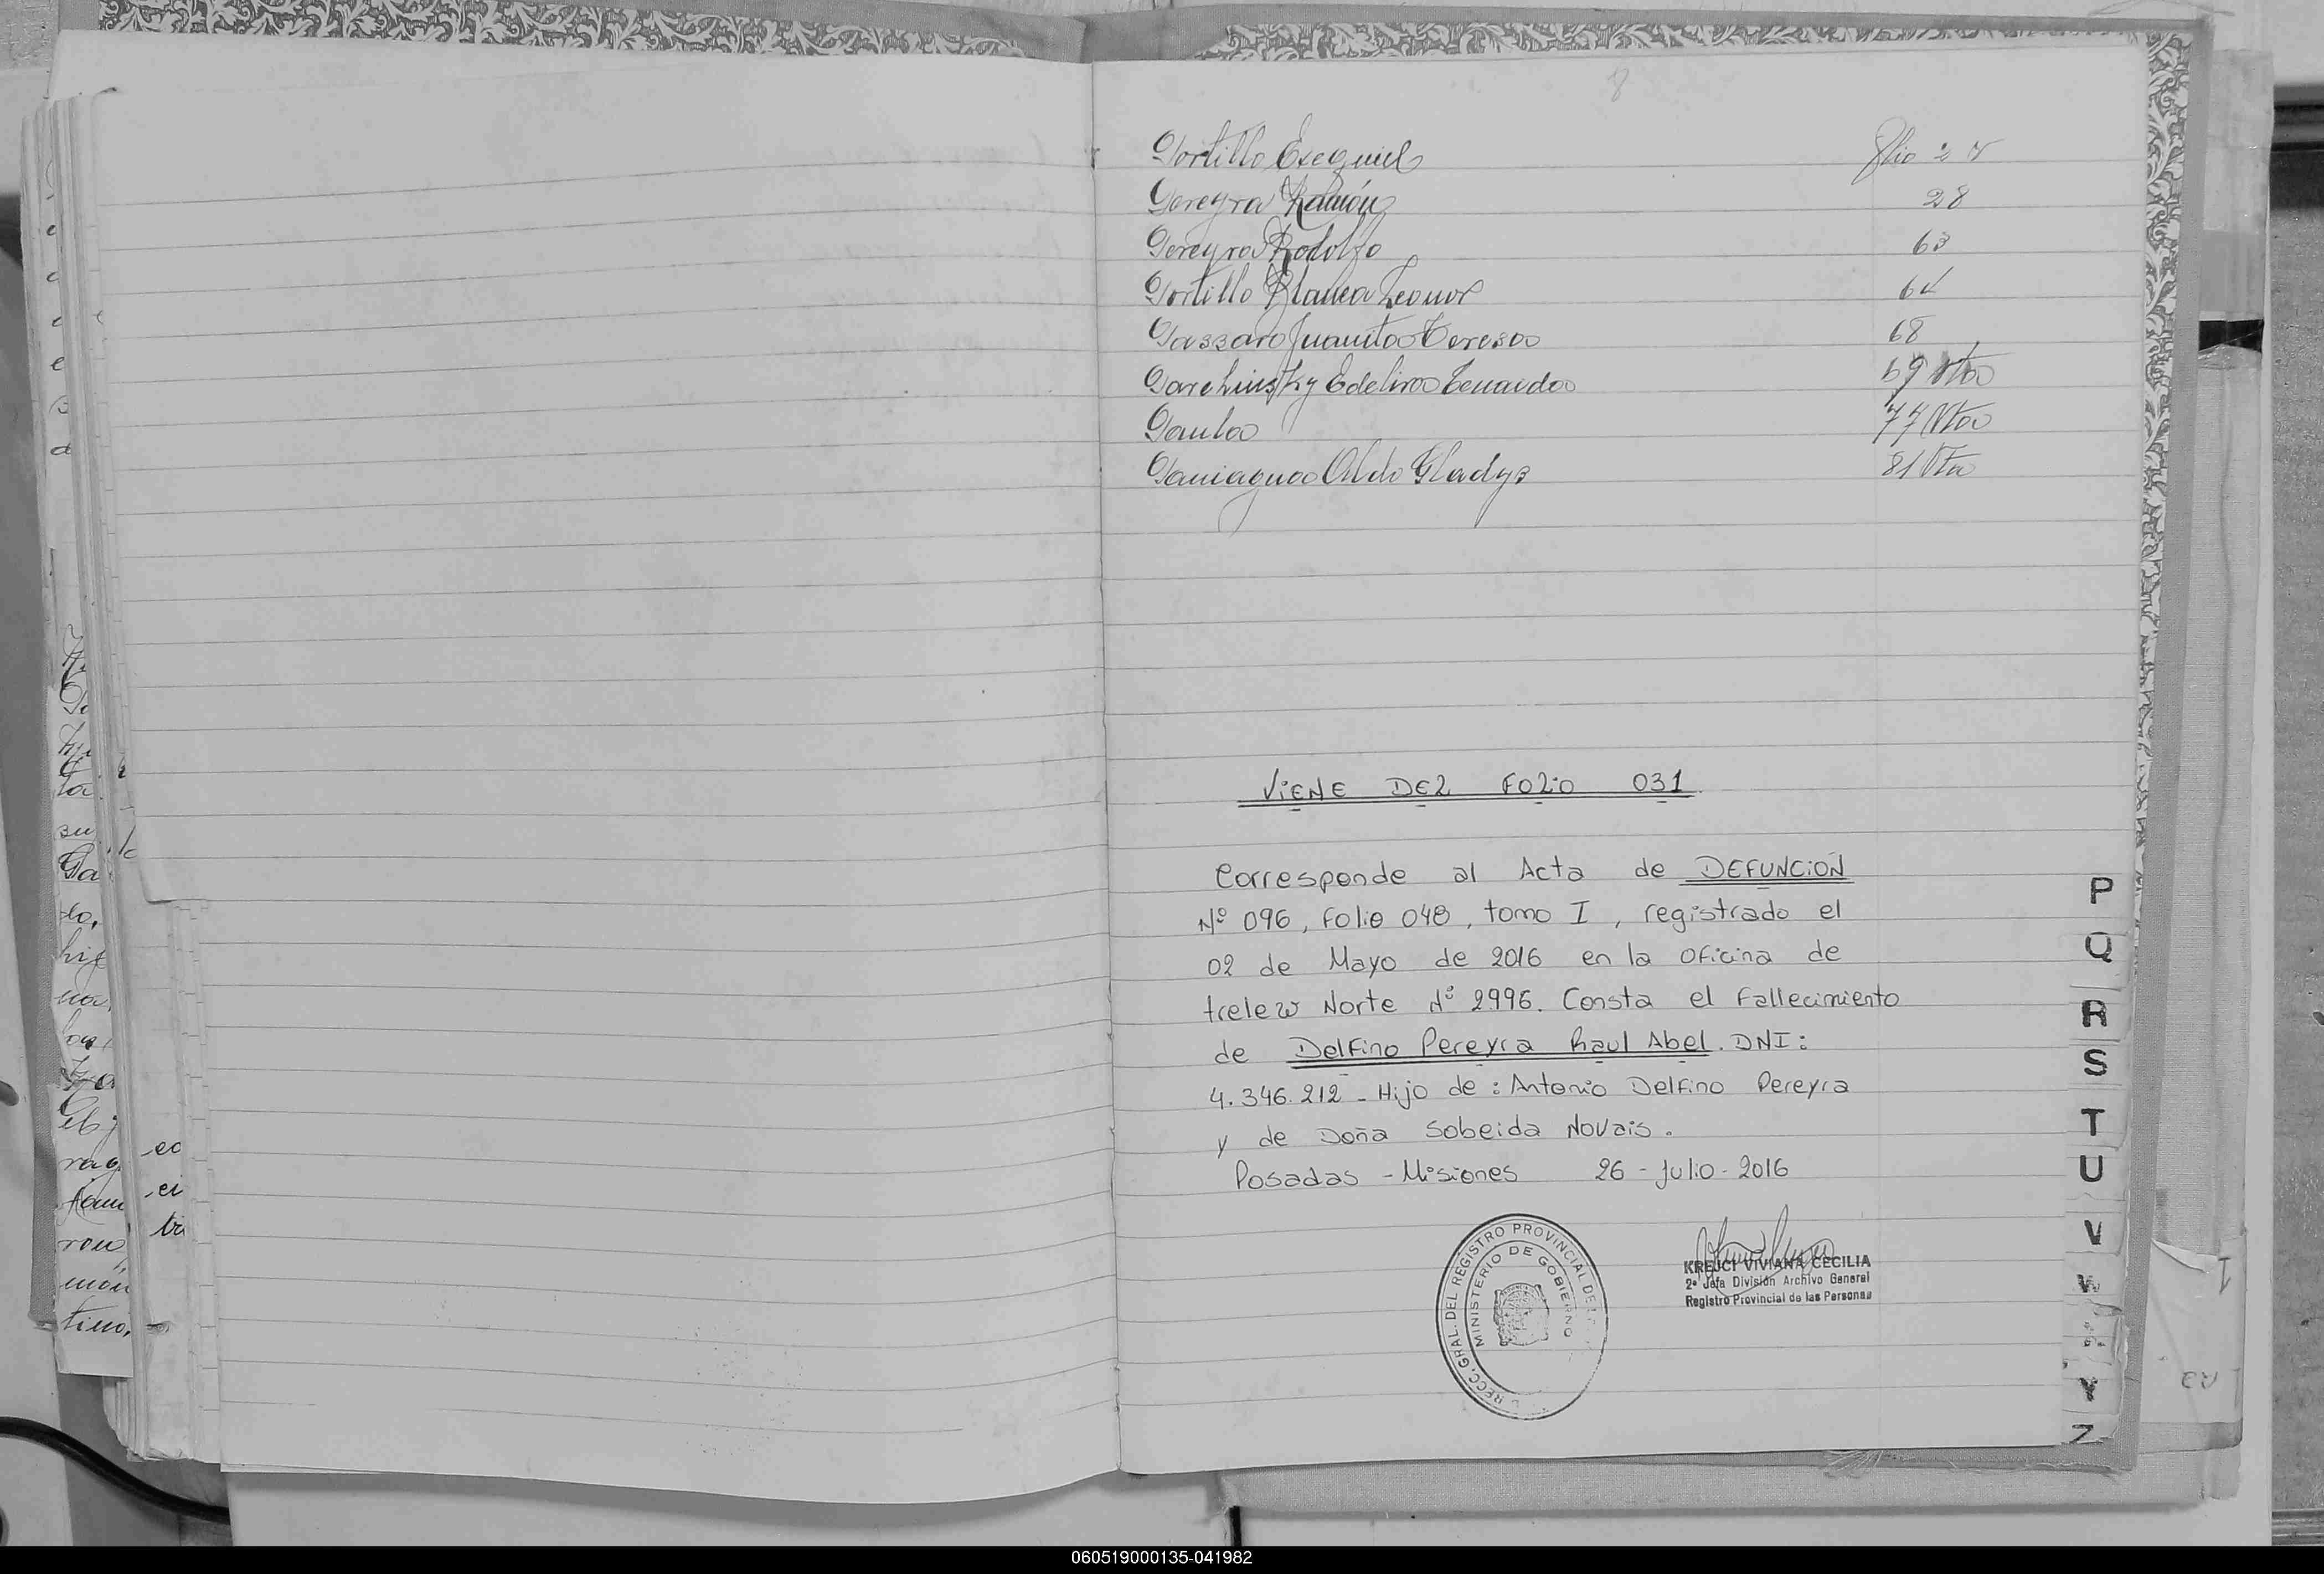 8
Portillo Exequiel folio 27
Pereyra Ramón 28
Pereyra Rodolfo 63
Portillo Blanca Leonor 64
Passaro Juanita Teresa 68
Parchinsky Edelira 69 Vta
Paula 77 Vta
Paniagua Aldo Gladys 81 Vta
ViENE DEL FOLiO 031
Corresponde al Acta de DEFUNCiÓN
Nº 096, Folio 048, tomo I, registrado el
02 de Mayo de 2016 en la oficina de
trelew Norte Nº 2996. Consta el Fallecimiento
de DelFino Pereyra Raul Abel. DNI:
4.346.212 - Hijo de: Antonio DelFino Pereyra
y de Doña Sobeida Novais.
Posadas - Misiones 26 - Julio - 2016
RECC. GRAL. DEL REGISTRO PROVINCIAL DE
MINISTERIO DE GOBIERNO
KREJCI VIVIANA CECILIA
2º Jefa División Archivo General
Registro Provincial de las Personas
P
Q
R
S
T
U
V
W
Y
Z
060519000135-041982